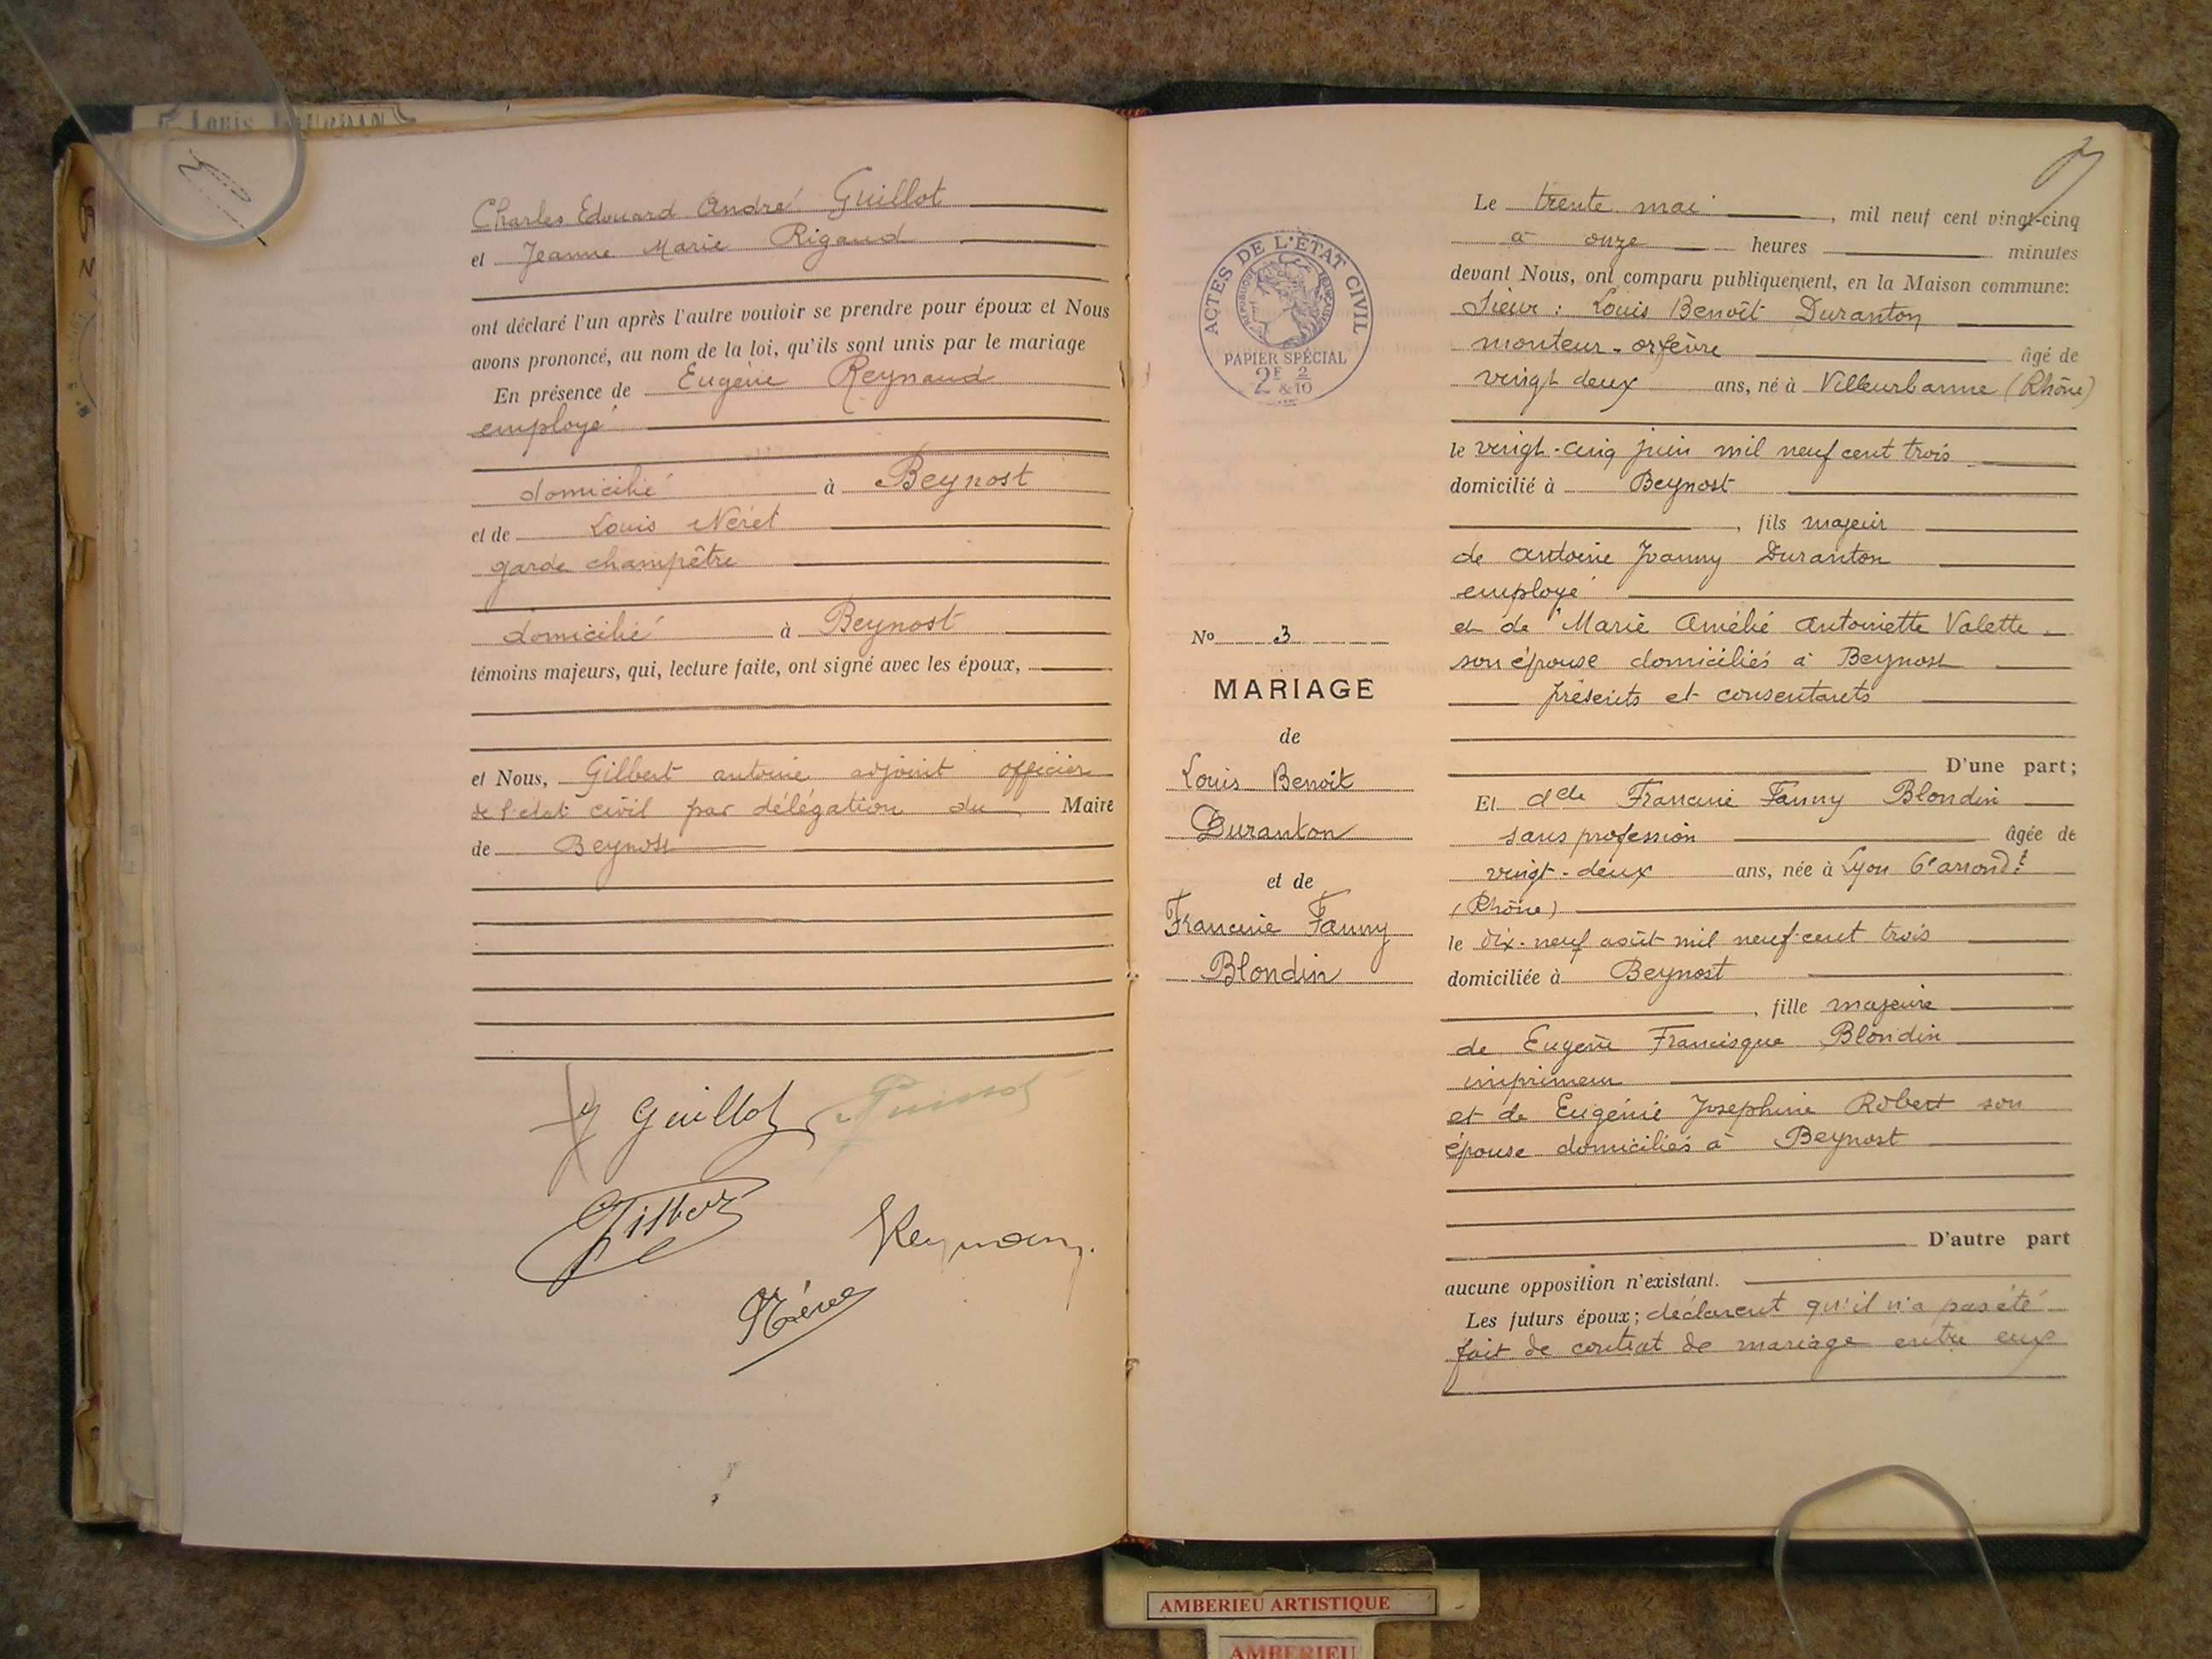 Charles Edouard André Guillot
et Jeanne Marie Rigaud
ont déclaré l'un après l'autre vouloir se prendre pour époux et Nous
avons prononcé, au nom de la loi, qu'ils sont unis par le mariage
En présence de Eugène Reynaud
employé
domicilié à Beynost
et de Louis Néret
garde champêtre
domicilié à Beynost
témoins majeurs, qui, lecture faite, ont signé avec les époux,
et Nous, Gilbert antoine adjoint officier
de l'état civil par délégation du Maire
de Beynost
J Guillot
Gilbert
ACTES DE L'ÉTAT CIVIL
RÉPUBLIQUE FRANÇAISE
PAPIER SPÉCIAL
2F & 2/10
No 3
MARIAGE
de
Louis Benoît
Duranton
et de
Francine Fanny
Blondin
Le trente mai, mil neuf cent vingt-cinq
à onze heures minutes
devant Nous, ont comparu publiquement, en la Maison commune:
Sieur : Louis Benoît Duranton
monteur-orfèvre âgé de
vingt deux ans, né à Villeurbanne (Rhône)
le vingt-cinq juin mil neuf cent trois
domicilié à Beynost
, fils majeur
de antoine Joanny Duranton
employé
et de Marie Amélie Antoinette Valette
son épouse domiciliés à Beynost
présents et consentants
D'une part;
Et delle Francine Fanny Blondin
sans profession âgée de
vingt-deux ans, née à Lyon 6e arrondt
(Rhône)
le dix-neuf août mil neuf cent trois
domiciliée à Beynost
, fille majeure
de Eugène Francisque Blondin
imprimeur
et de Eugénie Joséphine Robert son
épouse domiciliés à Beynost
D'autre part
aucune opposition n'existant.
Les futurs époux; déclarent qu'il n'a pas été
fait de contrat de mariage entre eux
AMBERIEU ARTISTIQUE
AMBERIEU